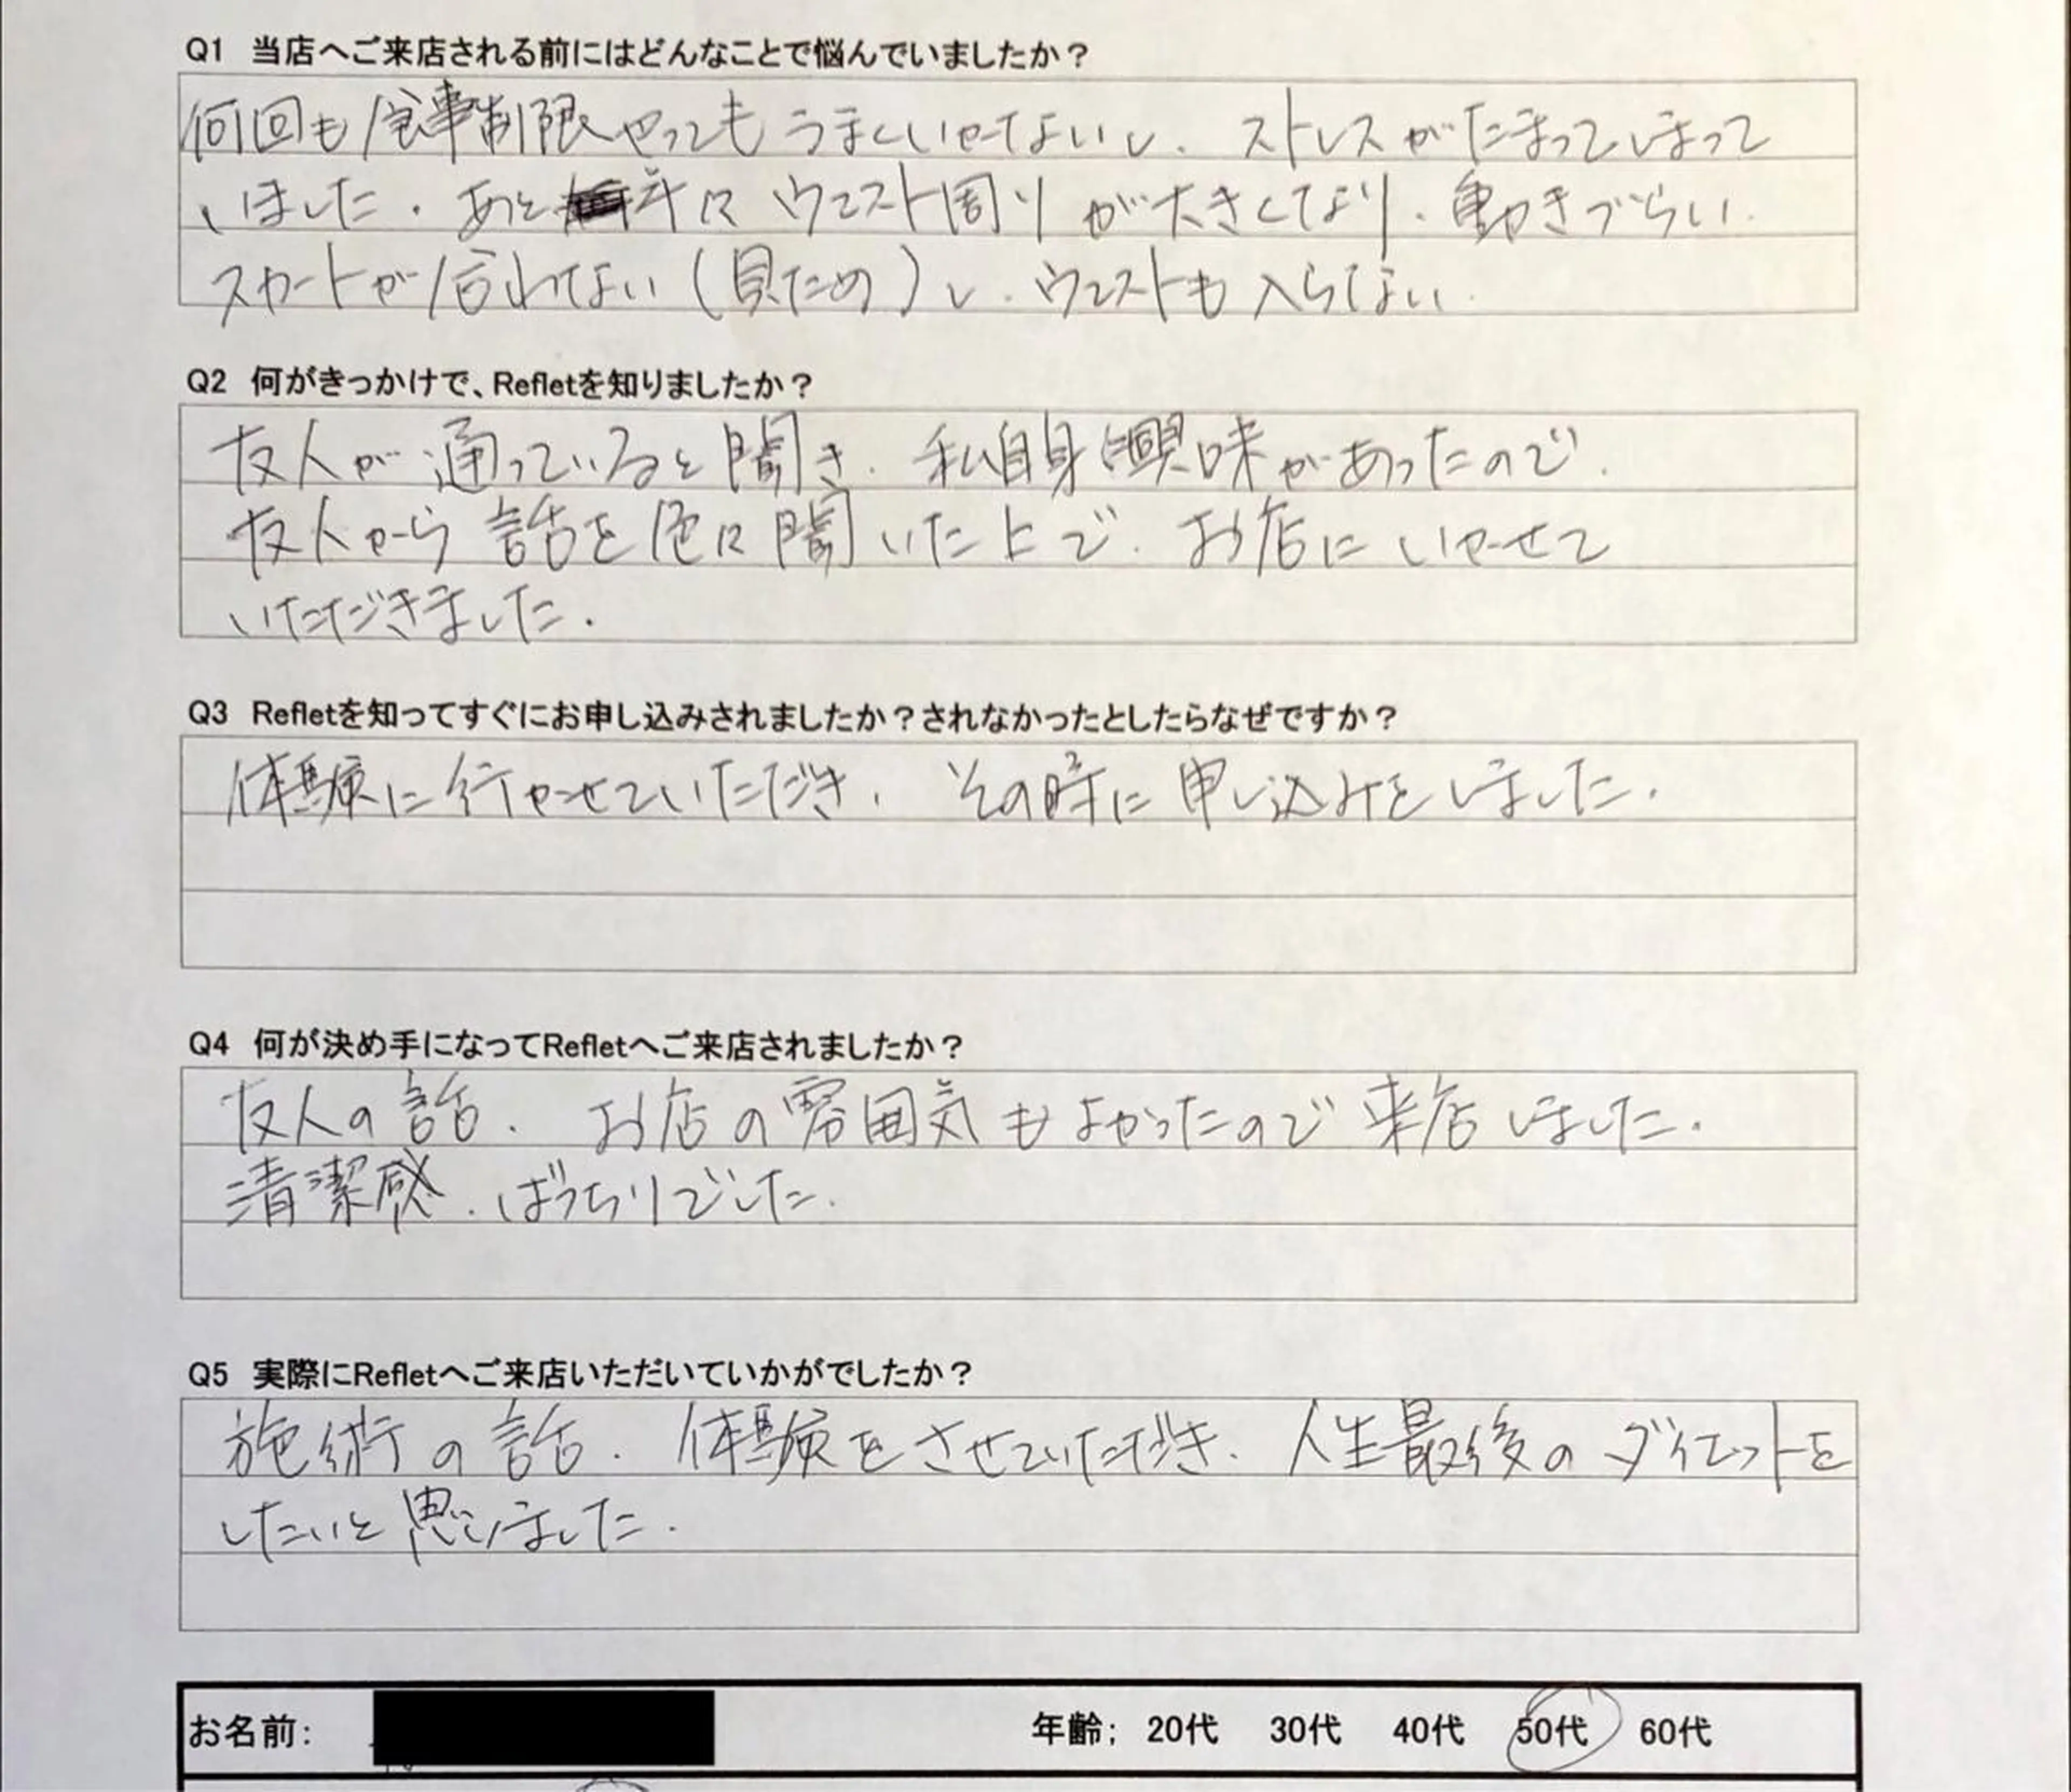 Q1 当店へご来店される前にはどんなことで悩んでいましたか？
何回も食事制限やってもうまくいかないし、ストレスがたまってしまって
いました。あと年々ウエスト周りが大きくなり、動きづらい。
スカートが似合わない（見ため）し、ウエストも入らない。
Q2 何がきっかけで、Refletを知りましたか？
友人が通っていると聞き、私自身興味があったので、
友人から話を色々聞いた上で、お店にいかせて
いただきました。
Q3 Refletを知ってすぐにお申し込みされましたか？されなかったとしたらなぜですか？
体験に行かせていただき、その時に申し込みをしました。
Q4 何が決め手になってRefletへご来店されましたか？
友人の話、お店の雰囲気もよかったので来店しました。
清潔感、ばっちりでした。
Q5 実際にRefletへご来店いただいていかがでしたか？
施術の話、体験をさせていただき、人生最後のダイエットを
したいと思いました。
お名前： 年齢； 20代 30代 40代 50代 60代